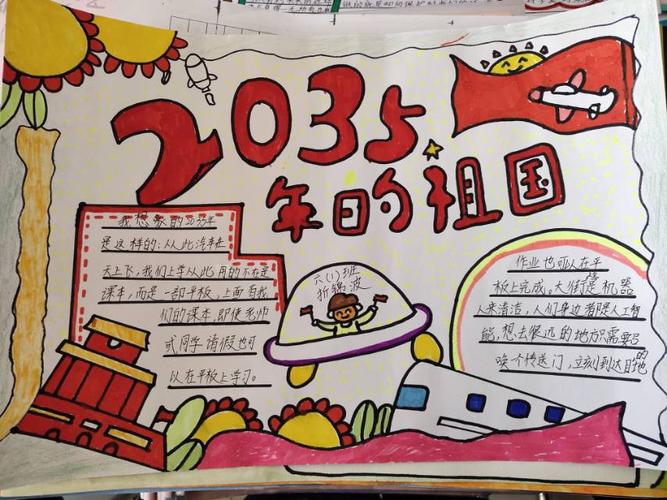 2035
年的祖国
我想象的2035年
是这样的:从此汽车在
天上飞,我们上学从此用的不在是
课本,而是一部平板,上面有我
们的课本,即使老师
或同学请假也可
以在平板上学习。
六(1)班
折锦波
作业也可以在平
板上完成,大街是机器
人来清洁,人们身边有人工智
能,想去很远的地方只需要
一个传送门,立刻到达目的地